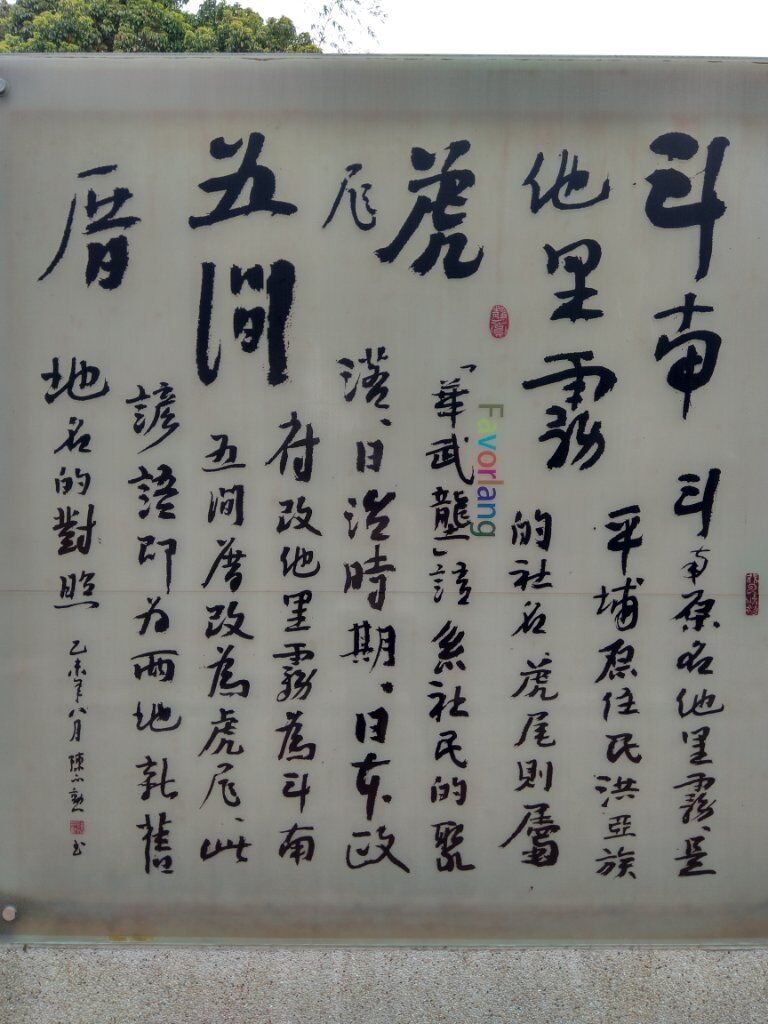 斗南
他里霧
虎
尾
五間
厝
斗南原名他里霧、是
平埔原住民洪亞族
的社名虎尾則屬
「華武壟」語系社民的聚
Favorlang
落、日治時期、日本政
府改他里霧為斗南
五間厝改為虎尾、此
諺語即为兩地新舊
地名的對照
乙未年八月 陳 勲 書